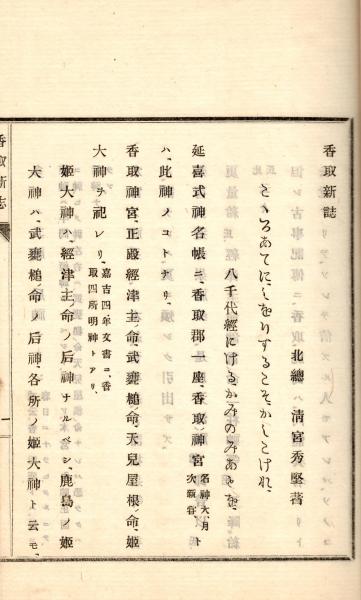 香取新誌
北總ハ 清宮秀堅著
こゝろあてにをりするこそかしこけれ、
八千代經にけるかみのみあとを、
延喜式神名帳ニ、香取郡一座、香取神宮 名神大、月
次新甞、ト
ハ、此神ノコトナリ、
香取神宮、正殿經津主ノ命、武甕槌ノ命、天兒屋根ノ命、姬
大神ヲ祀レリ、 嘉吉四年文書ニ、香
取四所明神トアリ、
姬大神ハ、經津主ノ命ノ后神ナルベシ、鹿島ノ姬
大神ハ、武甕槌ノ命ノ后神、各所ノ姬大神ト云モ、
香取新誌
一